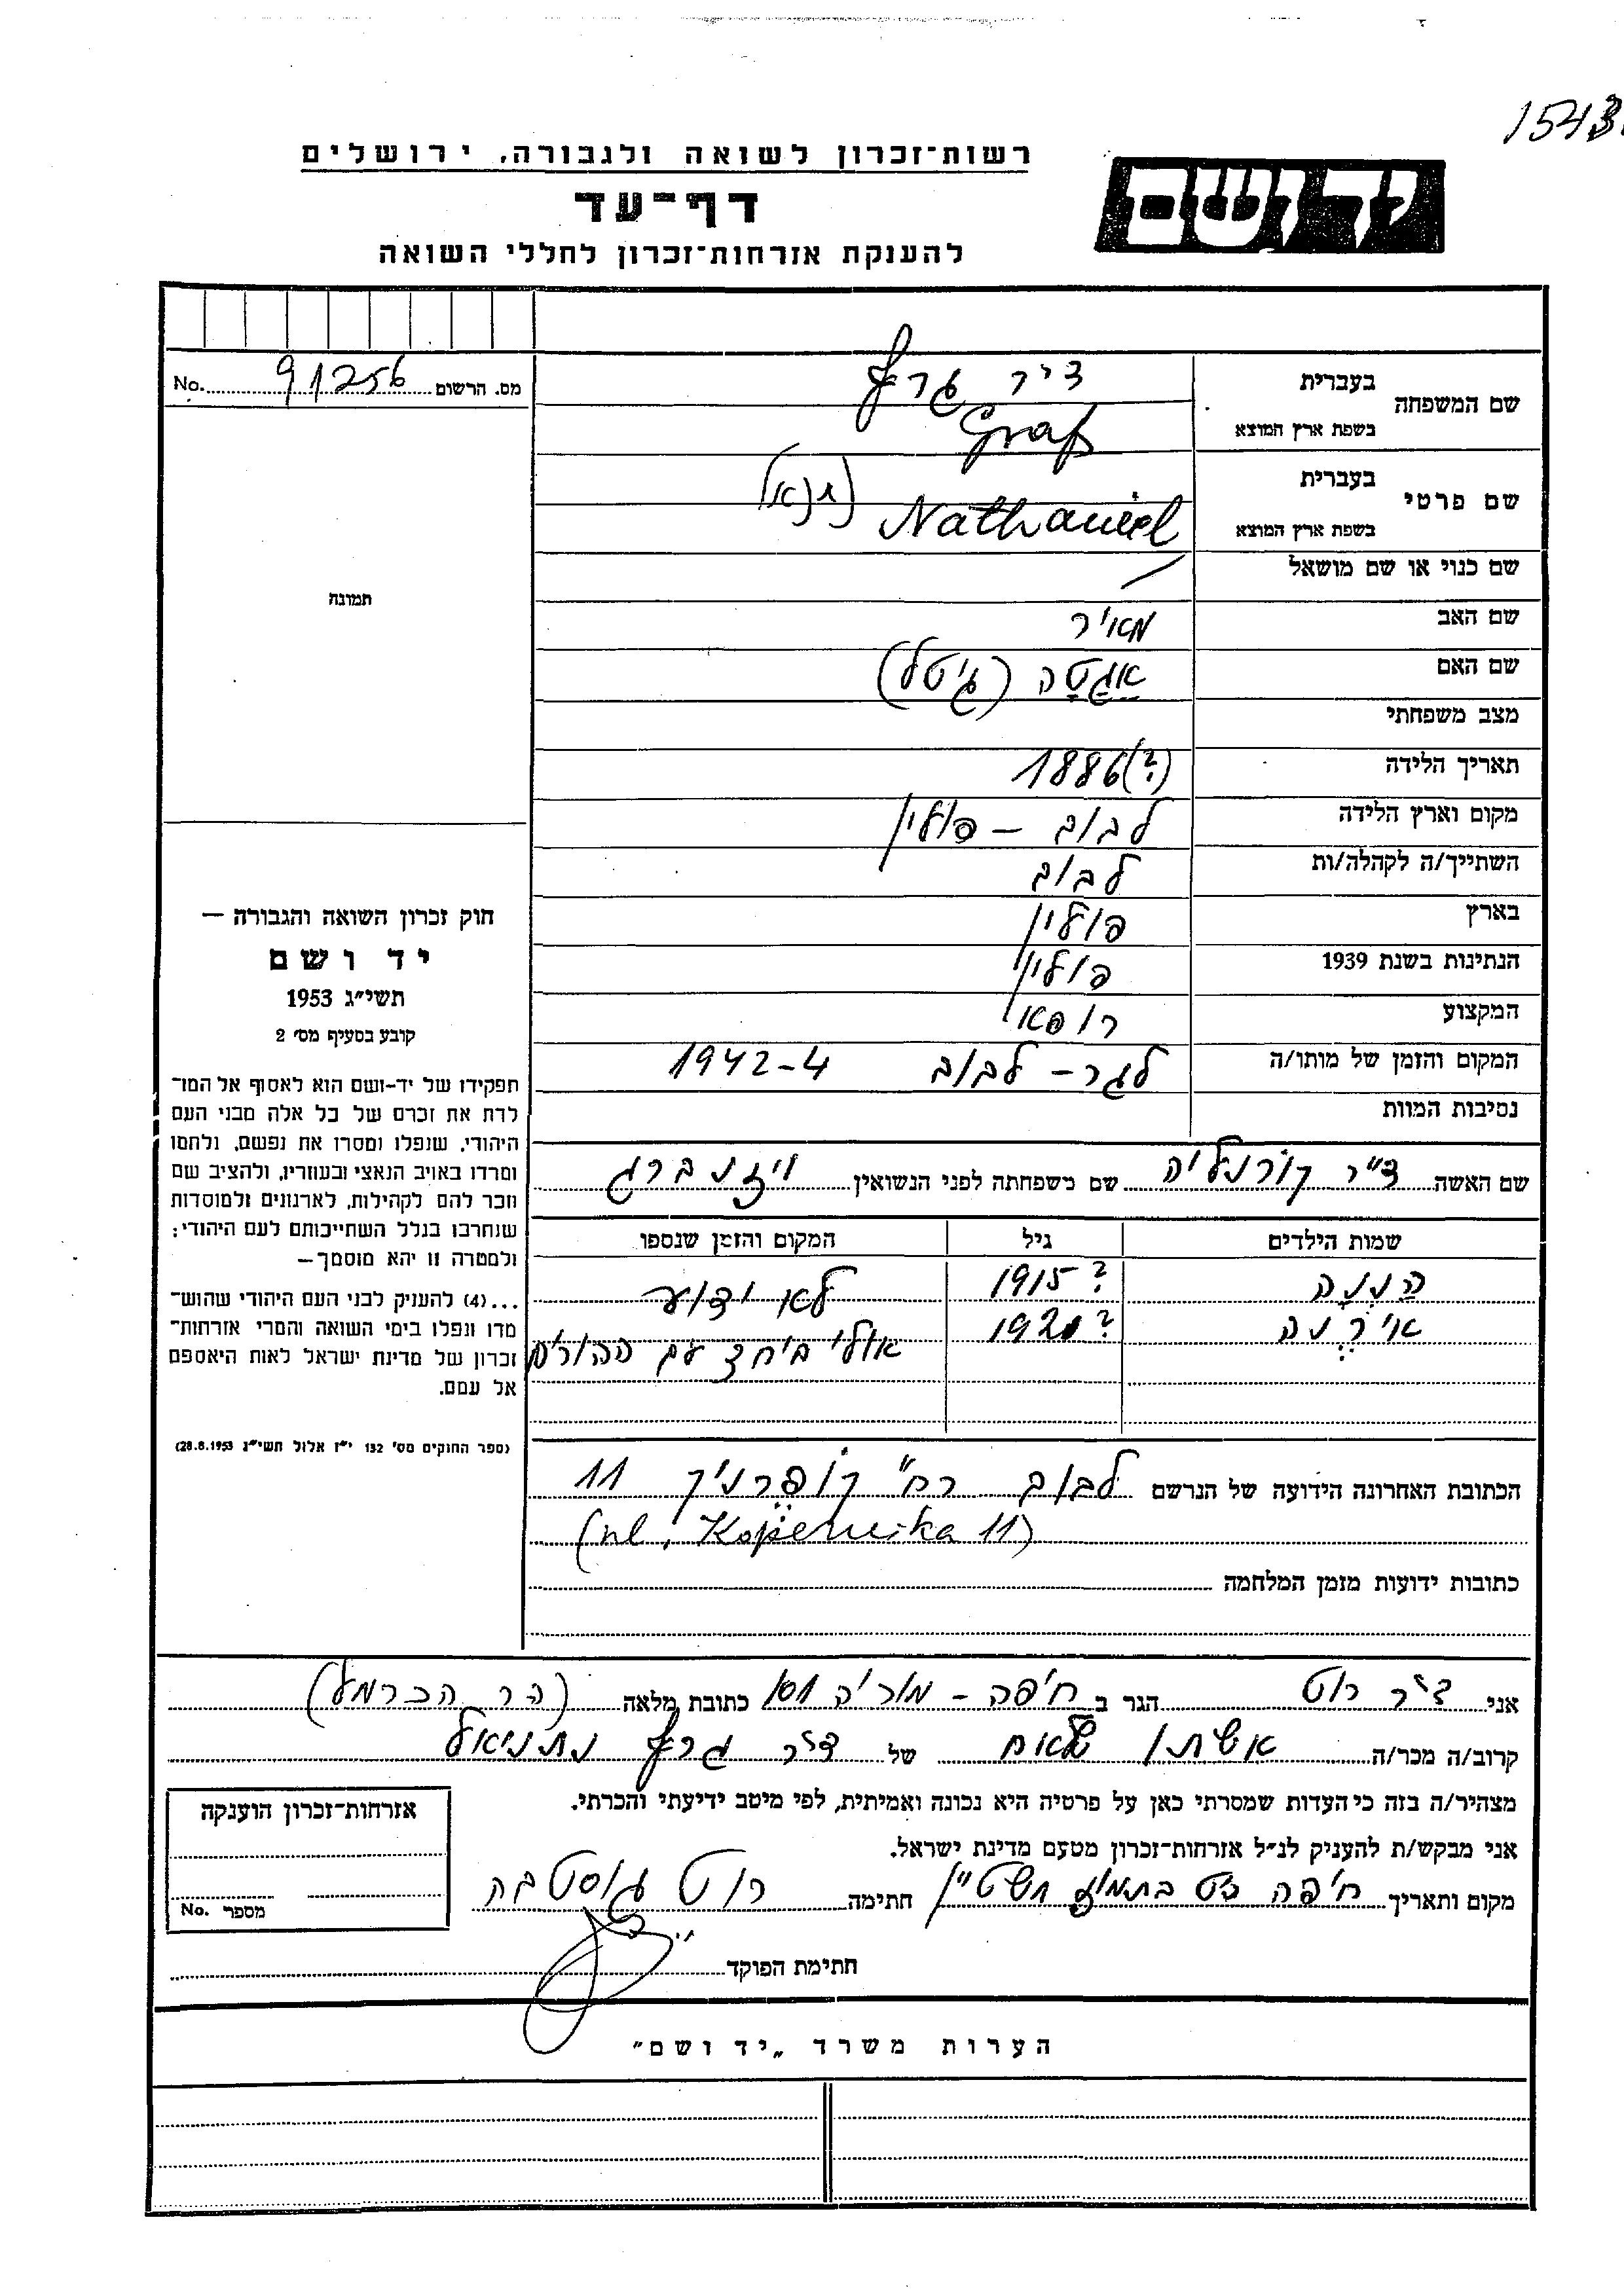 1543
רשות־זכרון לשואה ולגבורה, ירושלים
יד ושם
דף־עד
להענקת אזרחות־זכרון לחללי השואה
מס. הרשום 91256 No.
שם המשפחה
בעברית ד״ר גרף
בשפת ארץ המוצא Graf
שם פרטי
בעברית
בשפת ארץ המוצא Nathaniel
שם כנוי או שם מושאל /
תמונה
שם האב מאיר
שם האם אגטה (גיטל)
מצב משפחתי
תאריך הלידה 1886(?)
מקום וארץ הלידה לבוב – פולין
השתייך/ה לקהלה/ות לבוב
בארץ פולין
הנתינות בשנת 1939 פולין
המקצוע רופא
המקום והזמן של מותו/ה לגר – לבוב 1942-4
נסיבות המוות
שם האשה ד״ר קורנליה שם משפחתה לפני הנשואין ויזנברג
שמות הילדים גיל המקום והזמן שנספו
הננה 1915? לא ידוע
אירנה 1920? אולי ביחד עם ההורים
הכתובת האחרונה הידועה של הנרשם לבוב רח״ קופרניק 11
(ul. Kopernika 11)
כתובות ידועות מזמן המלחמה
חוק זכרון השואה והגבורה —
יד ושם
תשי״ג 1953
קובע בסעיף מס׳ 2
תפקידו של יד-ושם הוא לאסוף אל המו־
לדת את זכרם של כל אלה מבני העם
היהודי, שנפלו ומסרו את נפשם, נלחמו
ומרדו באויב הנאצי ובעוזריו, ולהציב שם
וזכר להם לקהילות, לארגונים ולמוסדות
שנחרבו בגלל השתייכותם לעם היהודי;
ולמטרה זו יהא מוסמך —
...(4) להעניק לבני העם היהודי שהוש־
מדו ונפלו בימי השואה והמרי אזרחות־
זכרון של מדינת ישראל לאות היאספם
אל עמם.
(ספר החוקים מס׳ 132 י״ז אלול תשי״ג 28.8.1953)
אני ד״ר רוט הגר ב חיפה – מוריה 101 כתובת מלאה (הר הכרמל)
קרוב/ה מכר/ה אשתו של ד״ר גרף נתניאל
מצהיר/ה בזה כי העדות שמסרתי כאן על פרטיה היא נכונה ואמיתית, לפי מיטב ידיעתי והכרתי.
אני מבקש/ת להעניק לנ״ל אזרחות־זכרון מטעם מדינת ישראל.
מקום ותאריך חיפה בתמוז חתימה רוט גוסטבה
חתימת הפוקד
אזרחות־זכרון הוענקה
מספר No.
הערות משרד „יד ושם״